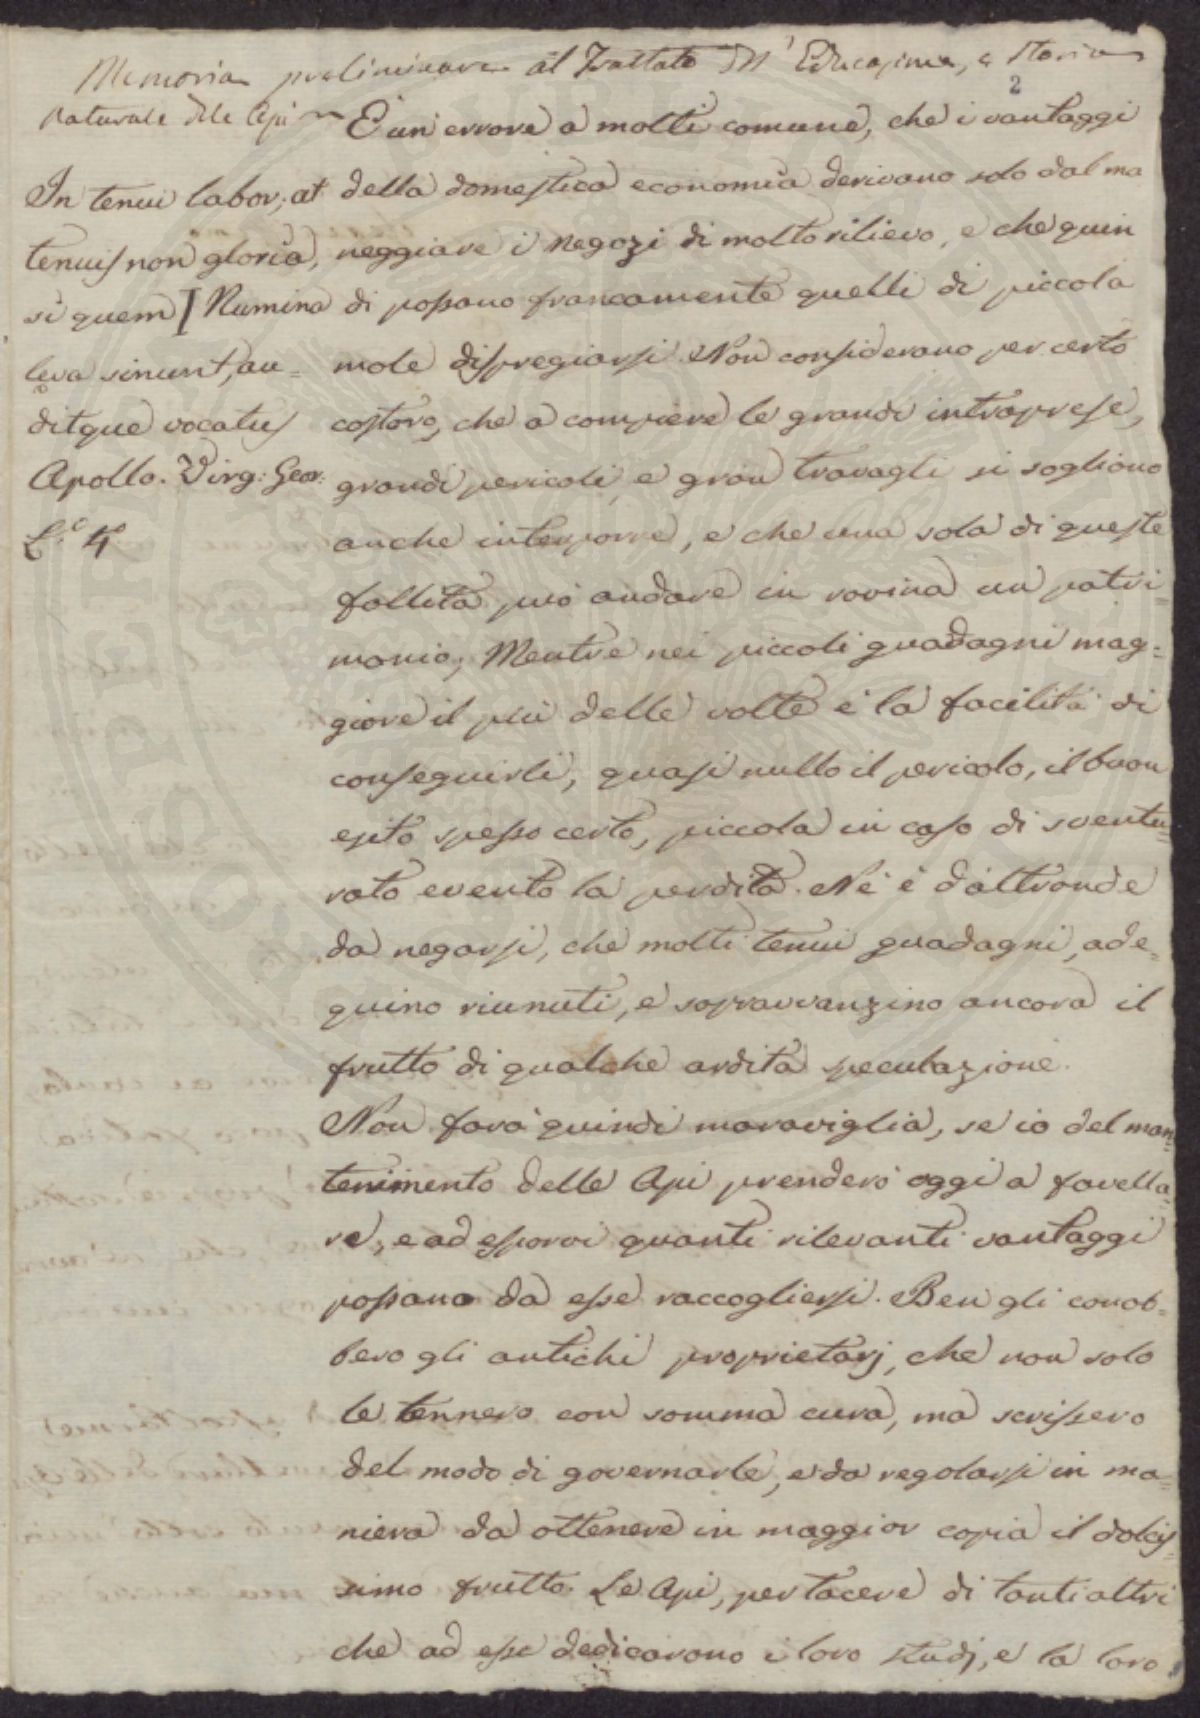 Memoria preliminare al Trattato dell' Educazione, e Storia
2
naturale delle Api
In tenui labor; at
tenuis non gloria,
si quem Numina
leva sinunt, au=
ditque vocatus
Apollo. Virg: Geor:
L.º 4º
È un' errore a molti comune, che i vantaggi
della domestica economia derivano solo dal ma
neggiare i negozi di molto rilievo, e che quin
di possano francamente quelli di piccola
mole dispregiarsi. Non considerano per certo
costoro, che a compiere le grandi intraprese,
grandi pericoli, e gran travagli si sogliono
anche interporre, e che una sola di queste
fallita può andare in rovina un patri=
monio; Mentre nei piccoli guadagni mag=
giore il più delle volte è la facilità di
conseguirli, quasi nullo il pericolo, il buon
esito spesso certo, piccola in caso di sventu=
rato evento la perdita. Nè è d'altronde
da negarsi, che molti tenui guadagni, ade=
quino riunuti, e sopravvanzino ancora il
frutto di qualche ardita speculazione.
Non farà quindi maraviglia, se io del man=
tenimento delle Api prenderò oggi a favella=
re, e ad esporvi quanti rilevanti vantaggi
possano da esse raccogliersi. Ben gli conob=
bero gli antichi proprietarj, che non solo
le tennero con somma cura, ma scrissero
del modo di governarle, e da regolarsi in ma=
niera da ottenere in maggior copia il dolcis=
simo frutto. Le Api, per tacere di tanti altri
che ad esse dedicarono i loro studj, e la loro